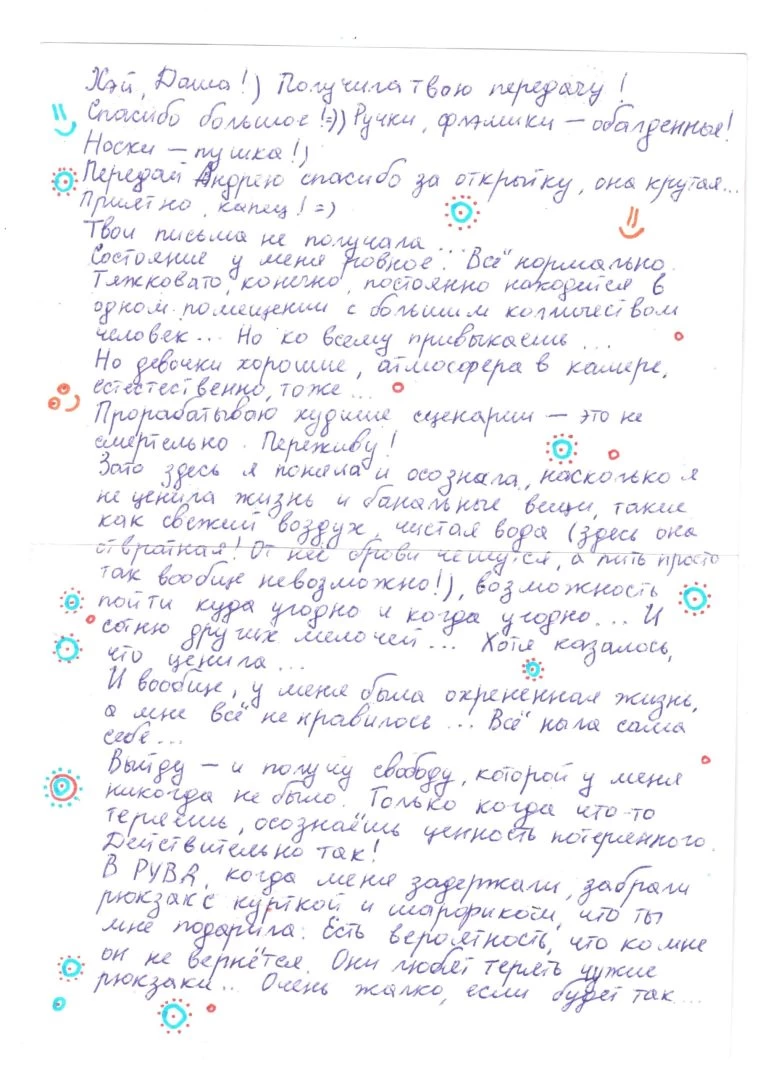 Хэй, Даша!) Получила твою передачу!
Спасибо большое!=)) Ручки, флэмики — обалденные!
Носки — пушка!)
Передай Андрею спасибо за открытку, она крутая...
Приятно, капец! =)
Твои письма не получала...
Состояние у меня ровное. Всё нормально.
Тяжковато, конечно, постоянно находится в
одном помещении с большим количеством
человек... Но ко всему привыкаешь...
Но девочки хорошие, атмосфера в камере,
естественно, тоже...
Прорабатываю худшие сценарии — это не
смертельно. Переживу!
Зато здесь я поняла и осознала, насколько я
не ценила жизнь и банальные вещи, такие
как свежий воздух, чистая вода (здесь она
отвратная! От неё брови чешутся, а пить просто
так вообще невозможно!), возможность
пойти куда угодно и когда угодно... И
сотню других мелочей... Хотя казалось,
что ценила...
И вообще, у меня была охрененная жизнь,
а мне всё не нравилось... Всё ныла сама
себе...
Выйду — и получу свободу, которой у меня
никогда не было. Только когда что-то
теряешь, осознаёшь ценность потерянного.
Действительно так!
В РУВД, когда меня задержали, забрали
рюкзак с курткой и шарфиком, что ты
мне подарила. Есть вероятность, что ко мне
он не вернётся. Они любят терять чужие
рюкзаки.. Очень жалко, если будет так...